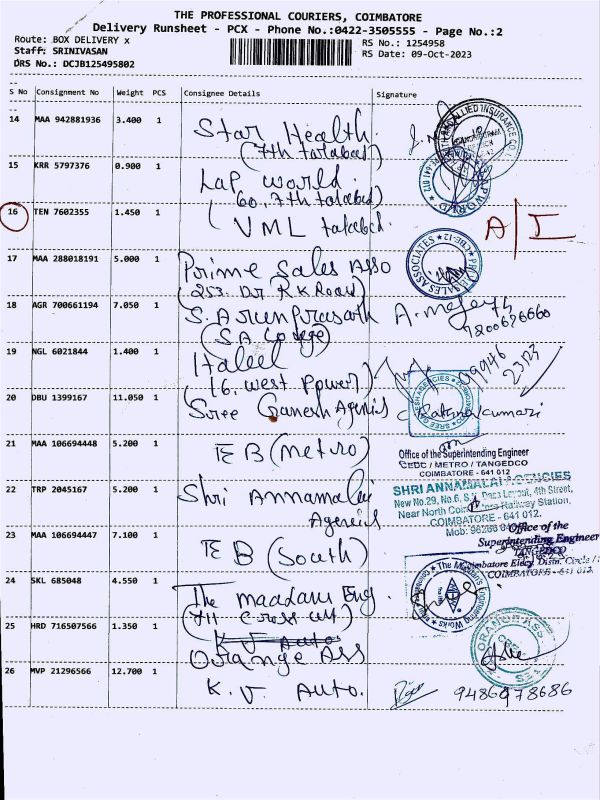 THE PROFESSIONAL COURIERS, COIMBATORE
Delivery Runsheet - PCX - Phone No.:0422-3505555 - Page No.:2
Route: BOX DELIVERY x
RS No.: 1254958
Staff: SRINIVASAN
RS Date: 09-Oct-2023
DRS No.: DCJB125495802
S No Consignment No Weight PCS Consignee Details Signature
14 MAA 942881936 3.400 1 Star Health
(7th tatabad)
15 KRR 5797376 0.900 1 Lap world.
60, 7th tatabad)
LAP WORLD
16 TEN 7602355 1.450 1 ( VML tatabad.
A/I
17 MAA 288018191 5.000 1 Prime Sales Asso
(253. Dr R K Road)
SALES ASSOCIATES
18 AGR 700661194 7.050 1 S. Arunprasath
(S.A. College)
19 NGL 6021844 1.400 1 Haleel
(6. west Power)
99946
2323
20 DBU 1399167 11.050 1 Sree Ganesh Agencies
21 MAA 106694448 5.200 1 TEB (Metro)
Office of the Superintending Engineer
CEDC / METRO / TANGEDCO
COIMBATORE - 641 012
22 TRP 2045167 5.200 1 Shri Annamalai
Agencies
SHRI ANNAMALAI AGENCIES
New No.29, No.6, Layout, 4th Street,
Near North Railway Station,
COIMBATORE - 641 012.
Mob: 98268
23 MAA 106694447 7.100 1 TEB (South)
Office of the
Superintending Engineer
TANGEDCO
Coimbatore Elecy. Distn. Circle /
COIMBATORE - 641 012.
24 SKL 685048 4.550 1 The maadani Eng.
(7th cross cut)
25 HRD 716507566 1.350 1 K V Auto
Orange Ass
26 MVP 21296566 12.700 1 K. V. Auto.
9486978686